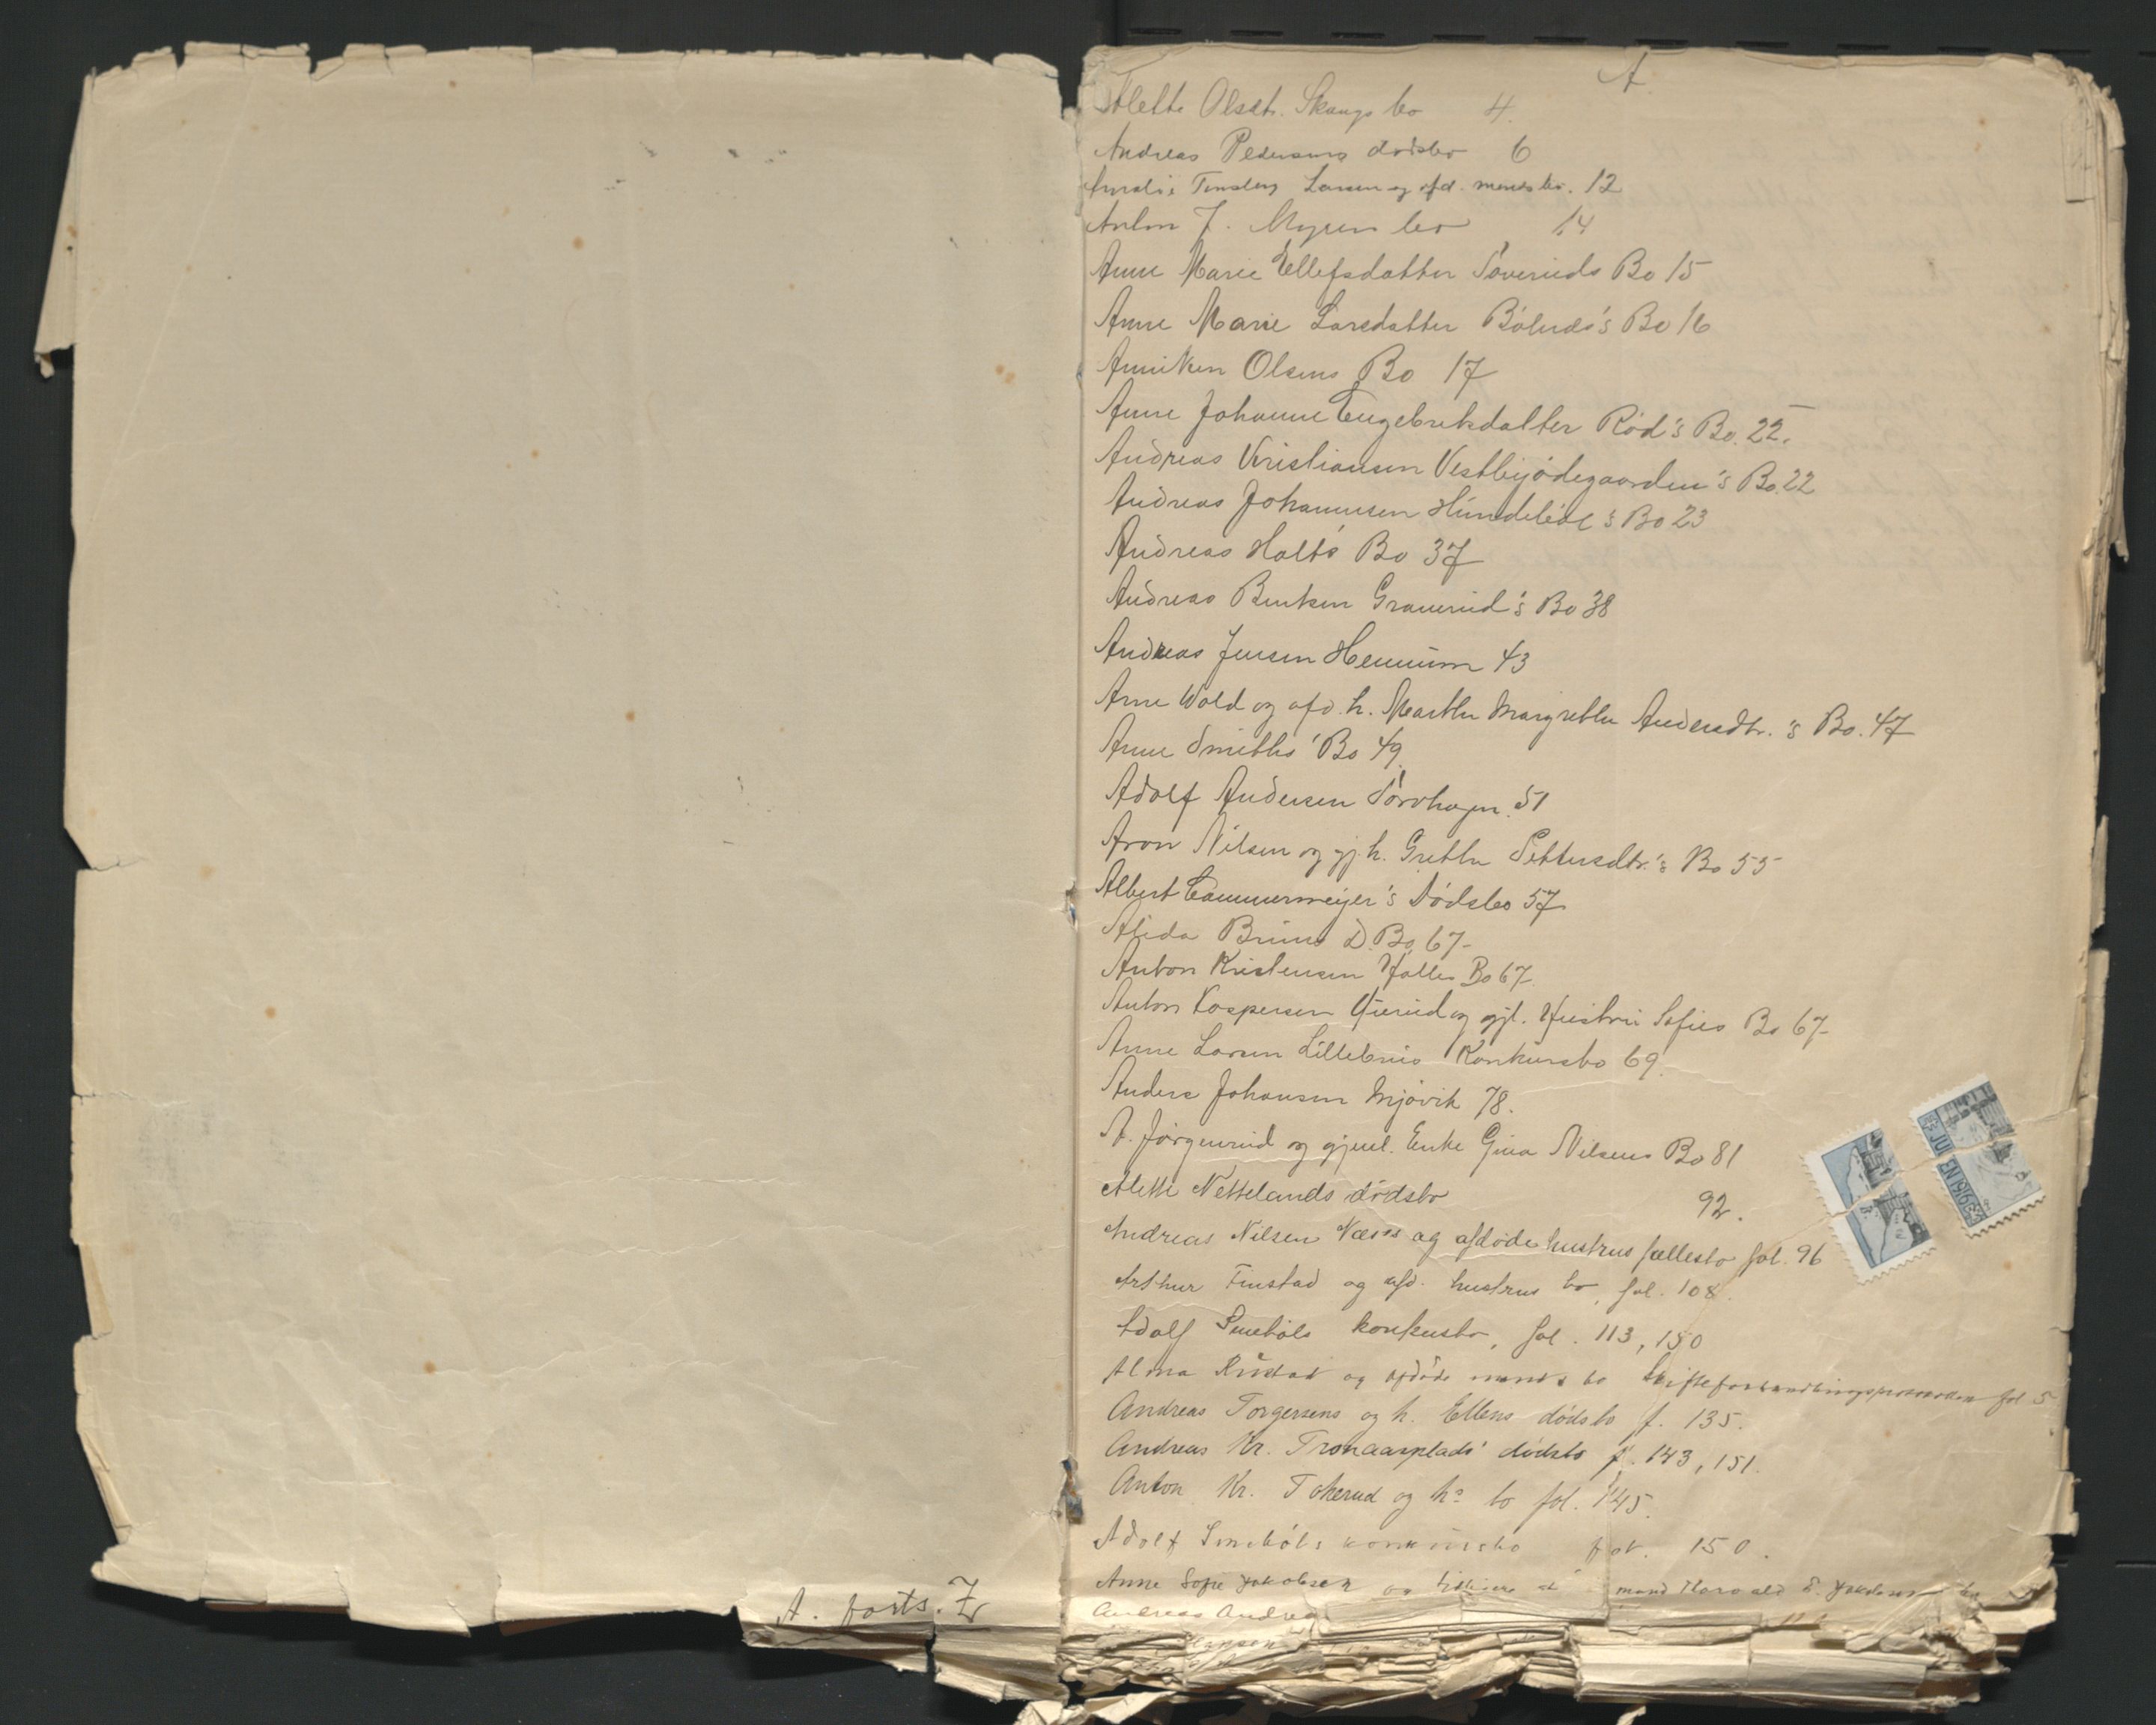 A. forts. Z
A
Alette Olsdtr. Skaugs bo 4.
Andreas Pedersens dødsbo 6
Larsen og afd. mands bo. 12
Anton J. Myrens bo 14
Anne Marie Ellefsdatter Søveruds Bo 15
Anne Marie Larsdatter Bo 16
Anniken Olsens Bo 17
Anne Johanne Engebretsdatter Rød's Bo. 22.
Andreas Kristiansen Vestbyødegaarden's Bo. 22
Andreas Johannesen Bo 23
Andreas Holts Bo 37
Andreas Berntsen Graverud's Bo 38
Andreas Jensen Hennum 43
Arne Wold og afd. h. Marthe Margrethe Andersdtr.'s Bo. 47
Anne Smiths' Bo 49.
Adolf Andersen 51
Aron Nilsen og gj. h. Grethe Pettersdtr.'s Bo 55
Albert Cammermeijer's Dødsbo 57
Alida Bruns D. Bo 67
Anton Kristensen Bo 67
Anton Kaspersen og gjl. Hustru Sofies Bo 67
Anne Larsen Konkursbo 69.
Anders Johansen Mjøvik 78.
A. Jørgenrud og gjenl. Enke Gina Nilsens Bo 81
Alette Nettelands dødsbo 92.
Andreas Nilsen Næss og afdøde hustrus fællesbo fol. 96
Arthur Finstad og afd. hustrus bo, fol. 108.
Adolf Smebøls konkursbo, fol. 113, 150
Alma Rustad og afdøde mands bo Skifteforhandlingsprotokollen fol 5
Andreas Torgersens og h. Ellens dødsbo f. 135.
Andreas Kr. Tronaasplads' dødsbo f. 143, 151.
Anton Kr. Tokerud og hs bo fol. 145.
Adolf Smebøls konkursbo fol. 150.
Anne Sofie Jakobsen og mand Harald Jakobsens bo
Andreas